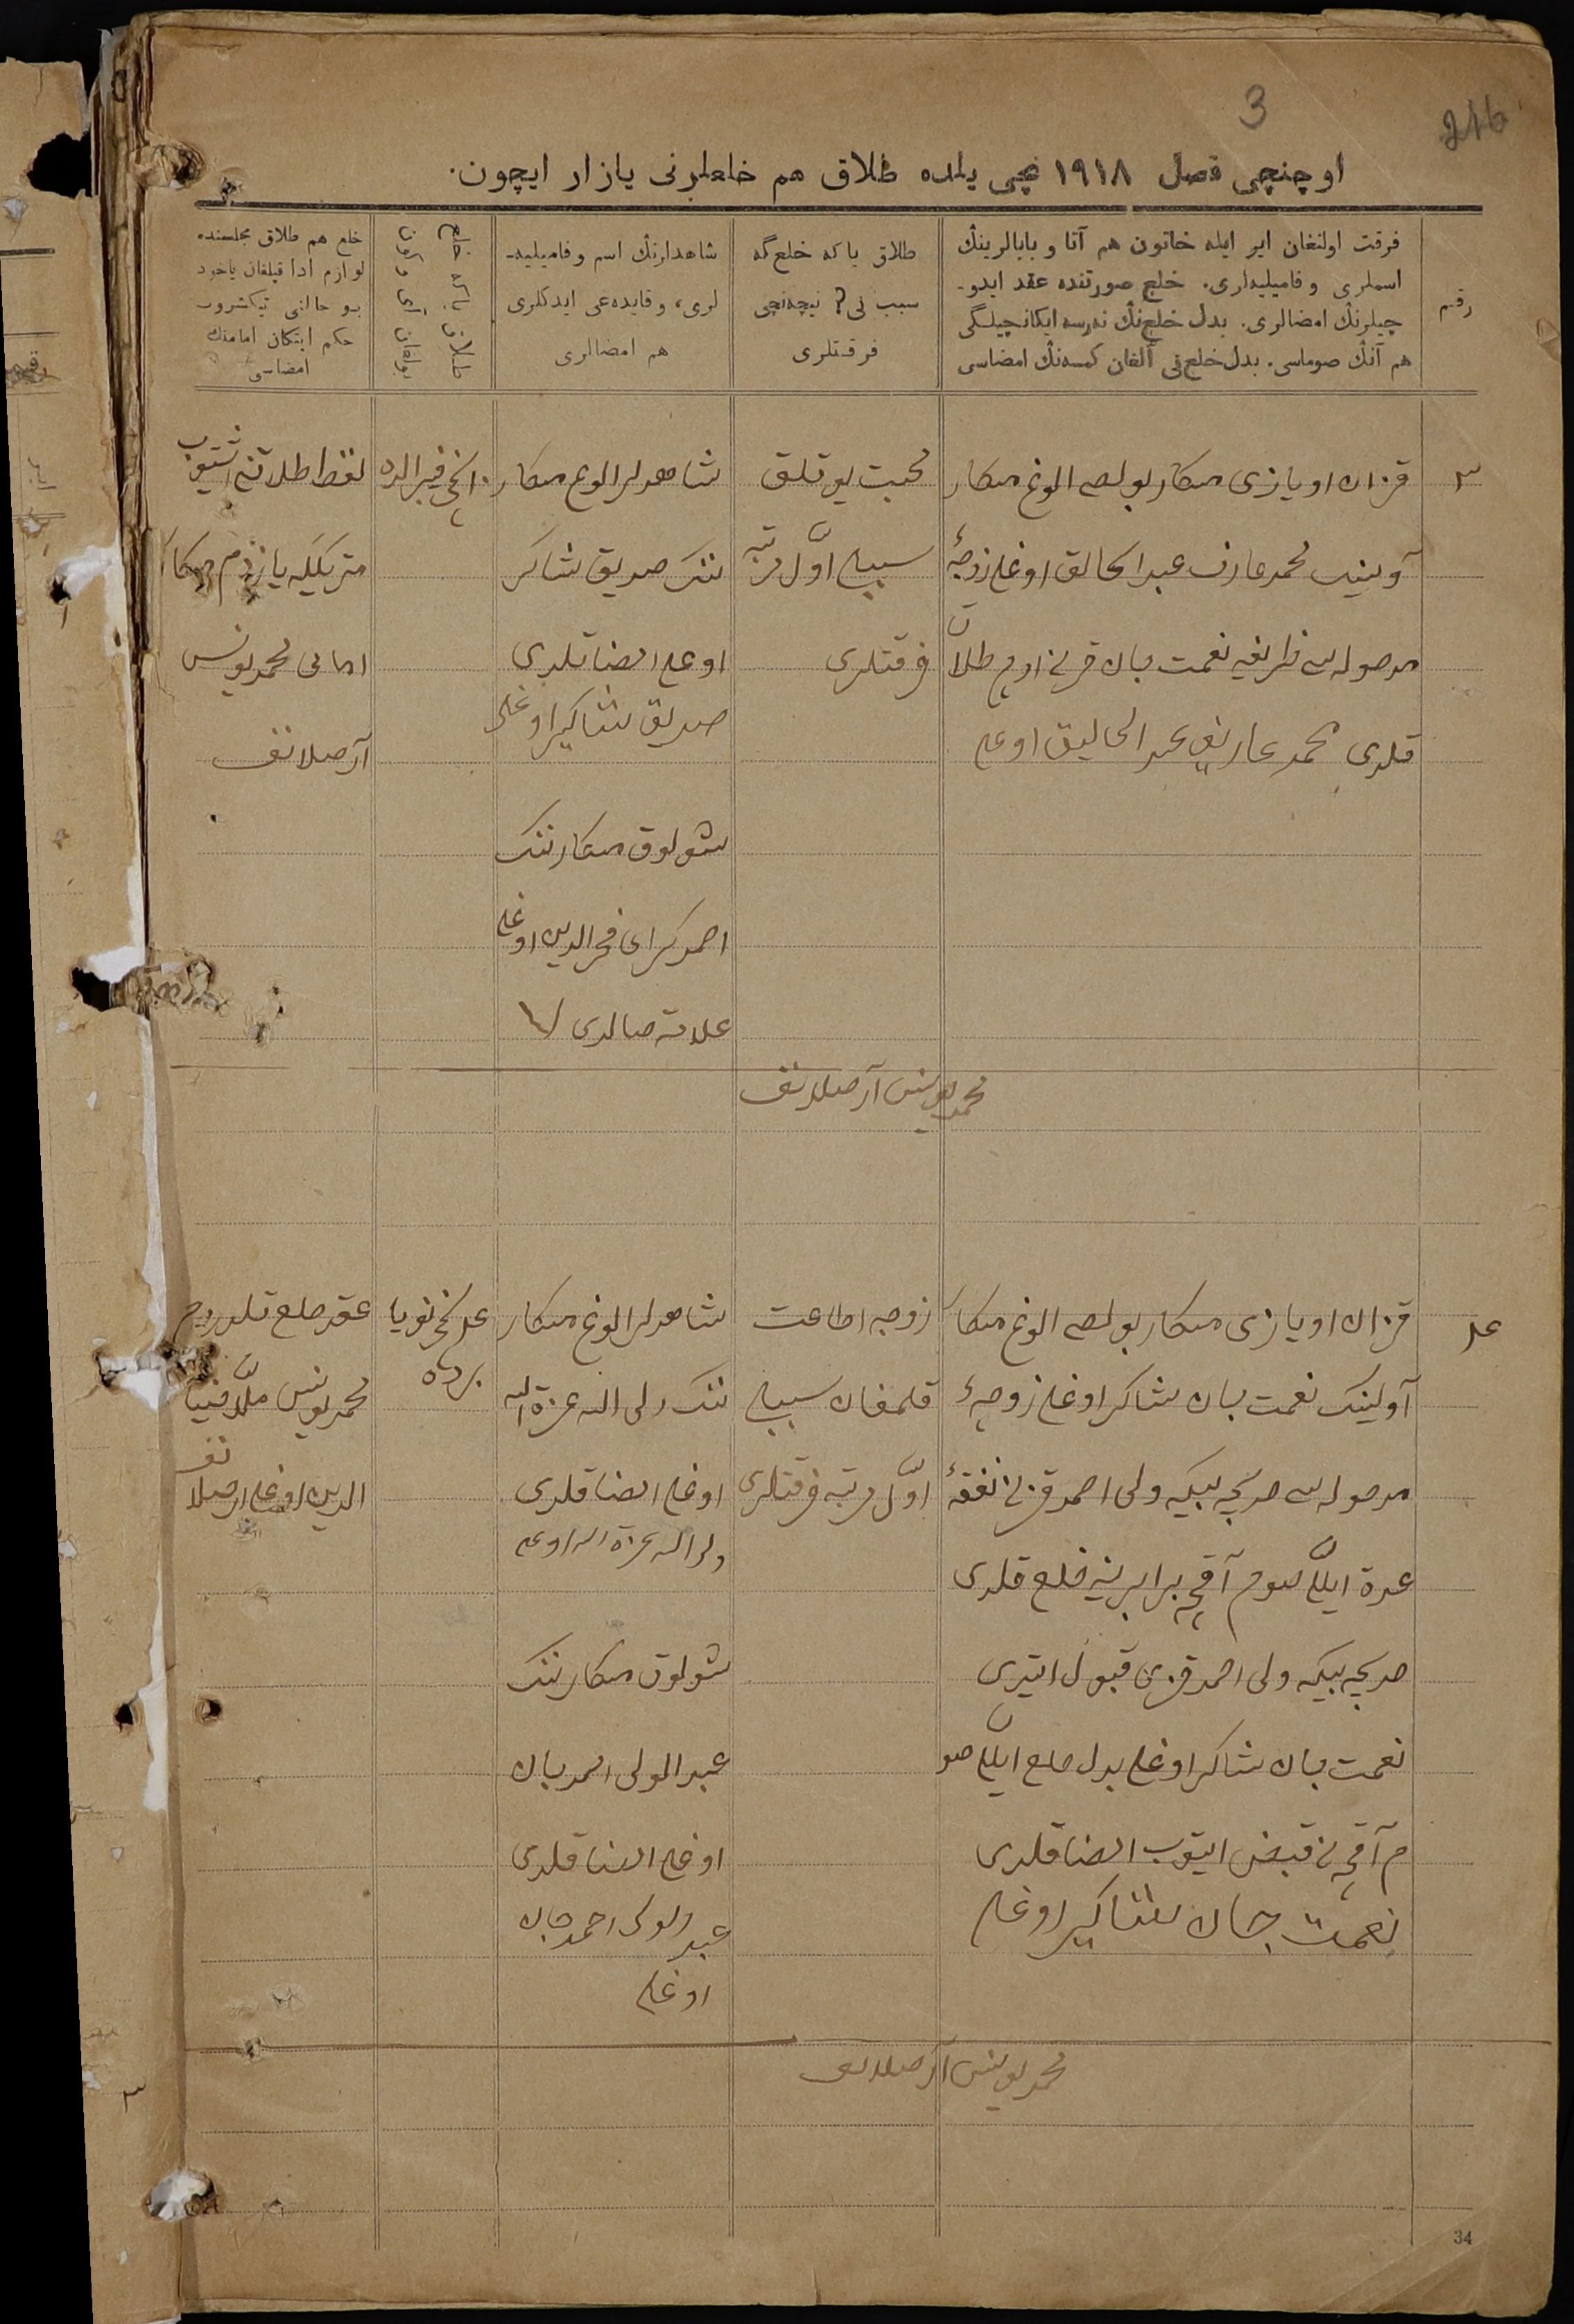 3
246
اوچنچی فصل ۱۹۱۸ نچی یلده طلاق هم خلعلرنی یازار ایچون.
رقم
فرقت اولنغان ایر ایله خاتون هم آتا و بابالرینڭ
اسملری و فامیلیه‌لری. خلع صورتنده عقد ایدو-
چیلرنڭ امضالری. بدل خلع‌نڭ نه‌رسه ایکانچیلگی
هم آنڭ صوماسی. بدل خلع‌نی آلغان کمسه‌نڭ امضاسی
طلاق یا که خلع گه
سبب نی؟ نیچه‌نچی
فرقتلری
شاهدلرنڭ اسم و فامیلیه-
لری، و قایده‌غی ایدکلری
هم امضالری
خلع یا که طلاق
بولغان آی و کون
خلع هم طلاق مجلسنده
لوازم ادا قیلغان یاخود
بو حالنی تیکشروب
حکم ایتکان امامنڭ
امضاسی
۳
قزان اویازی مسکار بولصی الوغ مسکار
آولینڭ محمد عارف عبدالخالق اوغلی زوجهٔ
مدخوله سی ظریفه نعمت جان قزینی اوچ طلاق
قلدی محمد عاریف عبد الخالیق اوغلی
محبت یوقلق
سببلی اوّل مرتبه
فرقتلری
شاهدلر الوغ مسکار
ننڭ صدیق شاکر
اوغلی امضا قلدی
صدیق شاکیر اوغلی
شولوق مسکارننڭ
احمدکرای فخرالدین اوغلی
علامة صالدی
۱۰نچی فیبرالده
لفظ طلاقنی ایشتوب
متریکگه یازدم مسکار
امامی محمدیونس
آرصلانف
محمدیونس آرصلانف
۴
قزان اویازی مسکار بولصی الوغ مسکار
آولینڭ نعمت جان شاکر اوغلی زوجهٔ
مدخوله سی خدیجه بیکه ولی احمد قزینی نفقهٔ
عدة ایللی صوم آقچه برابرینه خلع قلدی
خدیجه بیکه ولی احمد قزی قبول ایتدی
نعمت جان شاکر اوغلی بدل خلع ایللی صو
م آقچه نی قبض ایتوب امضا قلدی
نعمت جان شاکیر اوغلی
زوجه اطاعت
قلمغان سببلی
اوّل مرتبه فرقتلری
شاهدلر الوغ مسکار
ننڭ ولی الله عزة الله
اوغلی امضا قلدی
ولی الله عزة الله اوغلی
شولوق مسکارننڭ
عبدالمولی احمدجان
اوغلی امضا قلدی
عبدالمولی احمد جان
اوغلی
عقد خلع قلدردم
محمدیونس ملّا ضیا
الدین اوغلی ارصلانف
محمدیونس آرصلانف
34